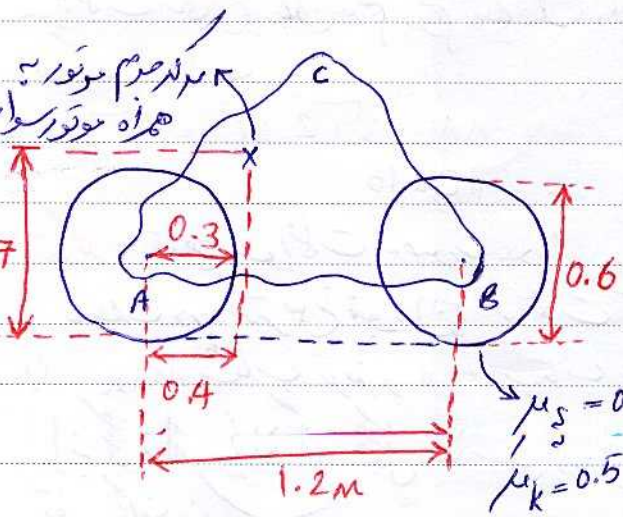 مرکز جرم موتور به
همراه موتورسوار
C
X
7
0.3
A
B
0.6
0.4
1.2m
μs = 0
μk = 0.5